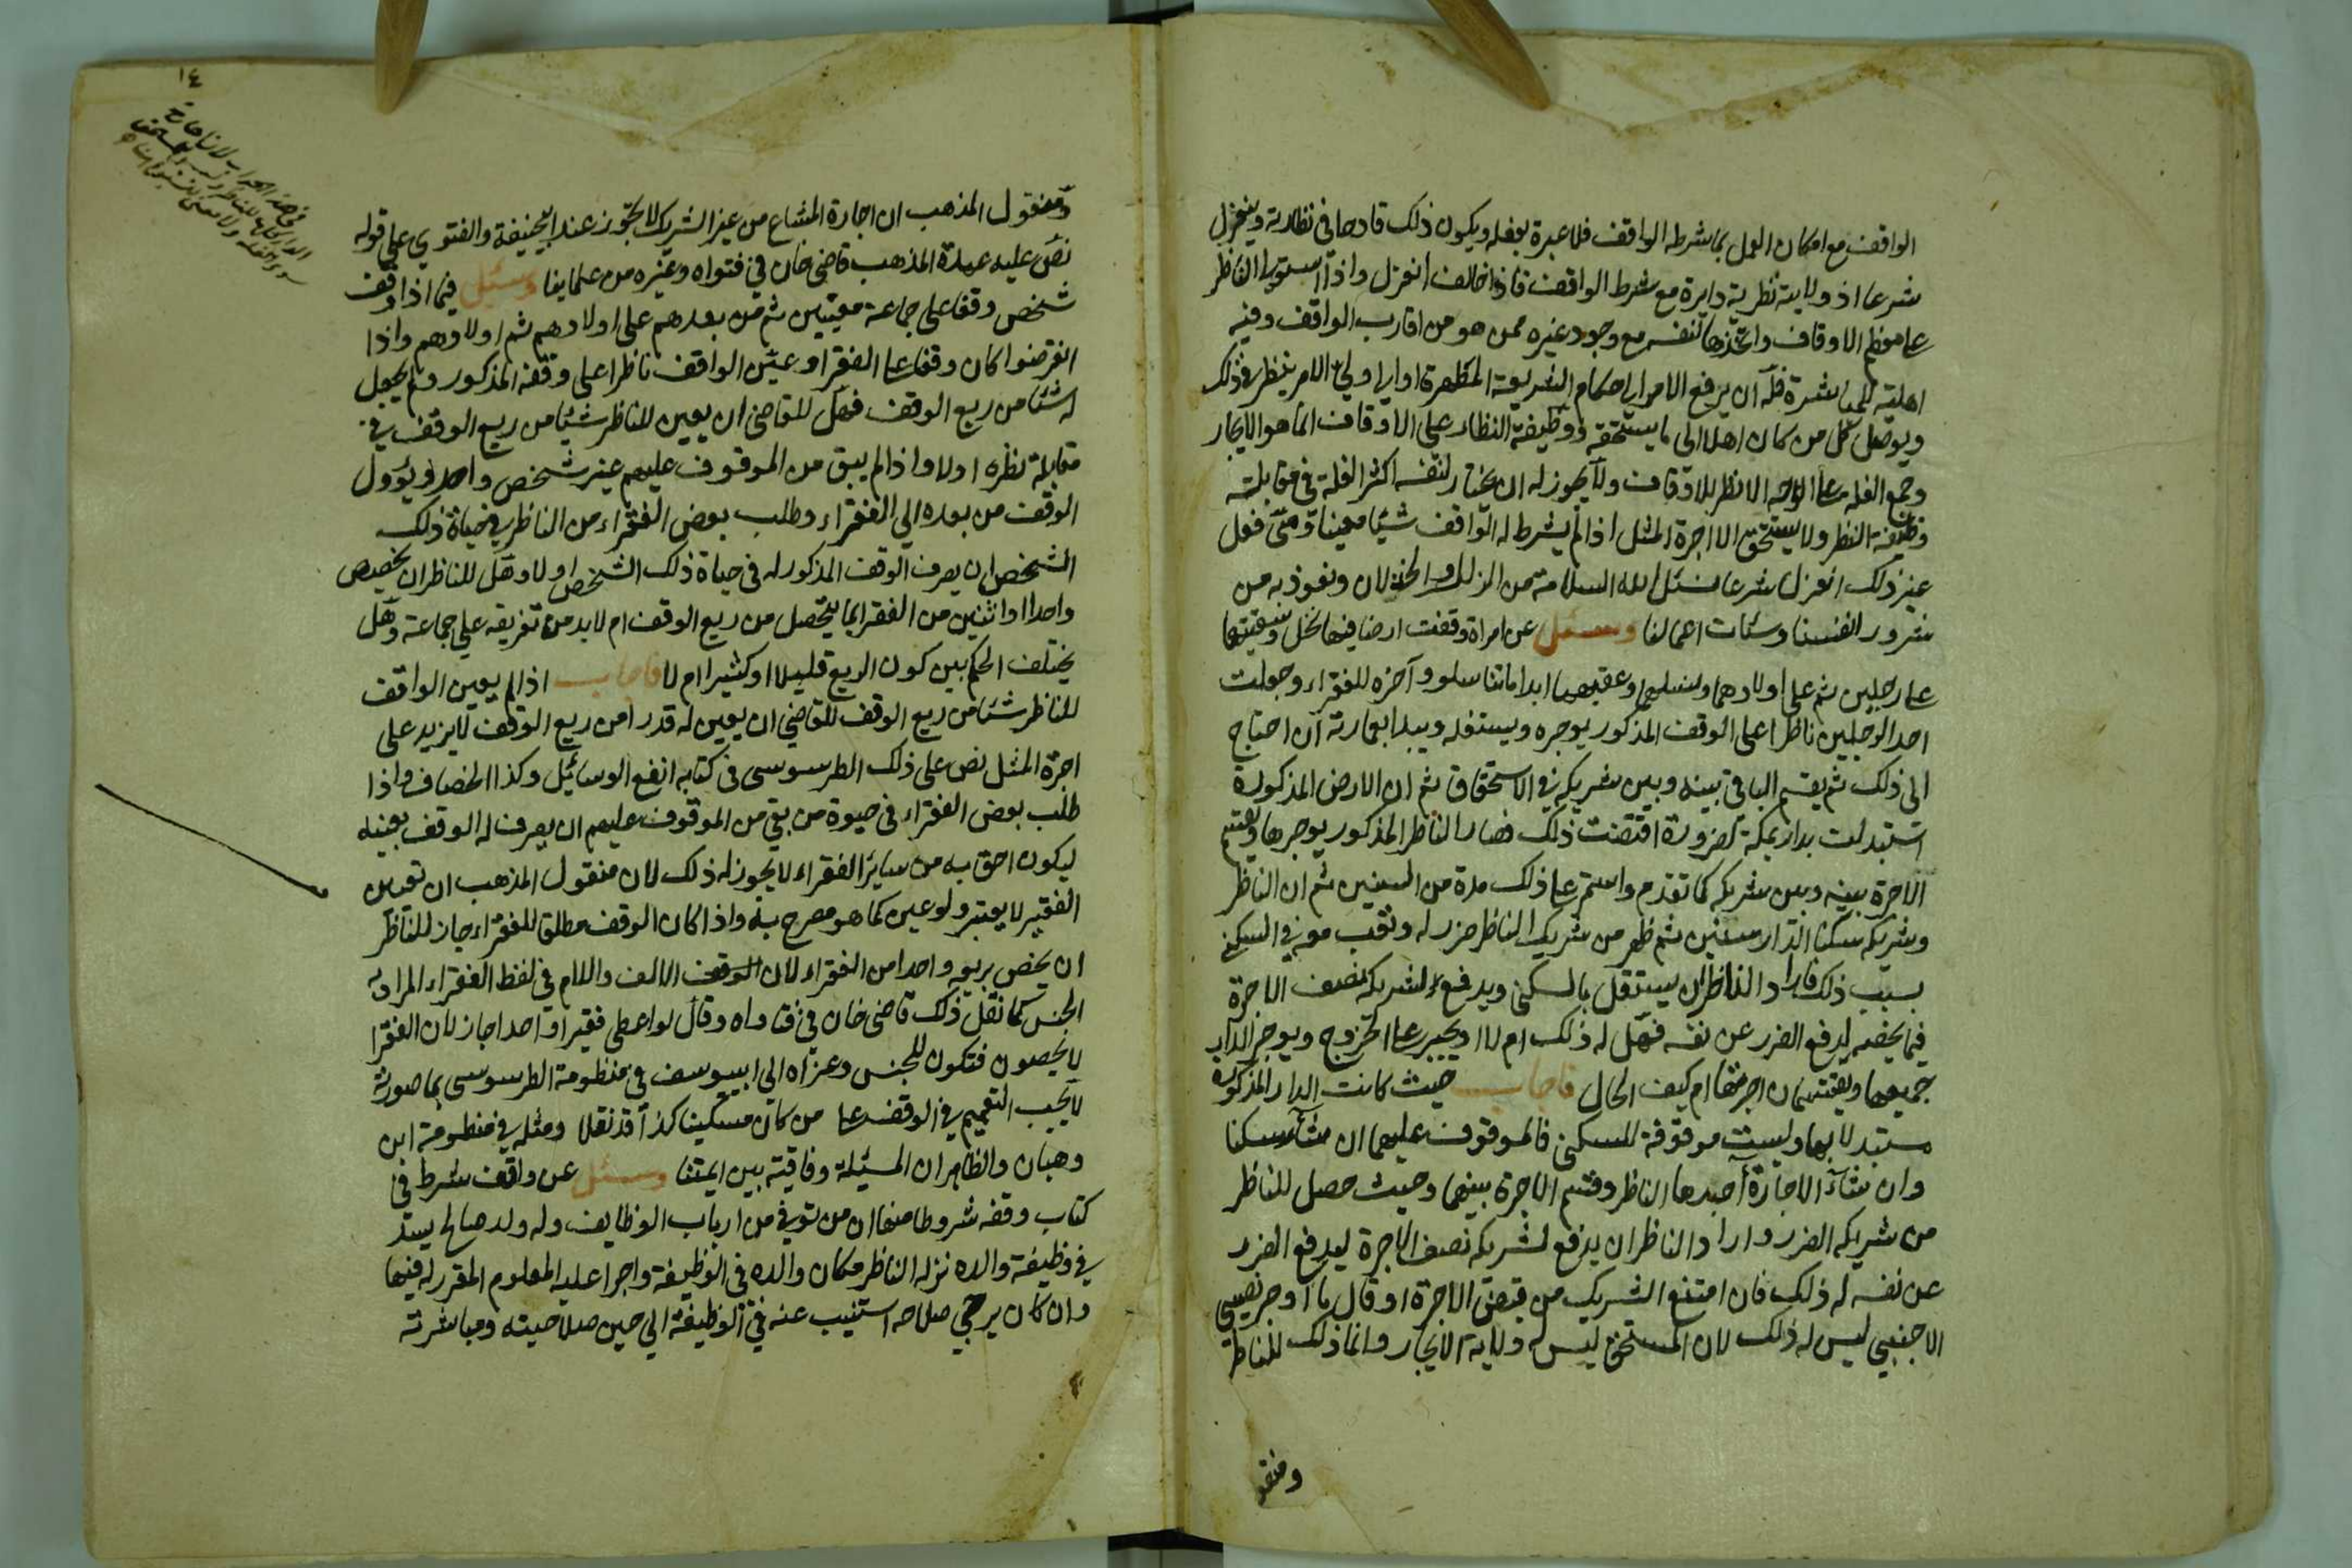 الواقف مع امكان العمل بما شرطه الواقف فلا عبرة بفعله ويكون ذلك قادحا في نظارته وينعزل
شرعا اذ ولاية نظريته دايرة مع شرط الواقف فاذا خالف انعزل واذا استولى الناظر
على معظم الاوقاف واتخذها لنفسه مع وجود غيره ممن هو من اقارب الواقف وفيه
اهلية للمباشرة فله ان يرفع الامر الى احكام الشريعة المطهرة او الى ولي الامر ينظر في ذلك
ويوصل كل من كان اهلا الى ما يستحقه ووظيفة النظار على الاوقاف انما هو الايجار
وجمع الغلة على الوجه الانظر للاوقاف ولا يجوز له ان يختار لنفسه اكثر الغلة في مقابلة
وظيفة النظر ولا يستحق الا اجرة المثل اذا لم يشرط له الواقف شيئا معينا ومتى فعل
غير ذلك انعزل شرعا نسئل الله السلامة من الزلل والخذلان ونعوذ به من
شرور انفسنا وسئات اعمالنا وسئل عن امراة وقفت ارضا فيها نخل وسقيتها
على رجلين ثم على اولادهما ونسلهما وعقبهما ابدا ما تناسلوا وآخره للفقراء وجعلت
احد الرجلين ناظرا على الوقف المذكور يوجره ويستغله ويبدا بعمارته ان احتاج
الى ذلك ثم يقسم الباقي بينه وبين شريكه في الاستحقاق ثم ان الارض المذكورة
استبدلت بدار بمكة لضرورة اقتضت ذلك فصار الناظر المذكور يوجرها ويقسم
الاجرة بينه وبين شريكه كما تقدم واستمر على ذلك مدة من السنين ثم ان الناظر
وشريكه سكنا الدار سنين ثم ظهر من شريك الناظر ضرر له وتعب معه في السكنى
بسبب ذلك فاراد الناظر ان يستقل بالسكنى ويدفع لشريكه نصف الاجرة
فيما يخصه ليدفع الضرر عن نفسه فهل له ذلك ام لا او يجبر على الخروج ويوجر الدار
جميعها ويقتسمان اجرتها ام كيف الحال فاجاب حيث كانت الدار المذكورة
مستبدلا بها وليست موقوفة للسكنى فالموقوف عليهما ان شاءا سكنا
وان شاءا الاجارة آجرها الناظر وقسم الاجرة بينهما وحيث حصل للناظر
من شريكه الضرر واراد الناظر ان يدفع لشريكه نصف الاجرة ليدفع الضرر
عن نفسه له ذلك فان امتنع الشريك من قبض الاجرة او قال انا اوجر نصيبي
الاجنبي ليس له ذلك لان المستحق ليس له ولاية الايجار وانما ذلك للناظر
ومنقو
١٤
ومنقول المذهب ان اجارة المشاع من غير الشريك لا تجوز عند ابي حنيفة والفتوي على قوله
نص عليه عمدة المذهب قاضي خان في فتواه وغيره من علماينا وسئل فيما اذا وقف
شخص وقفا على جماعة معينين ثم من بعدهم على اولادهم ثم اولادهم واذا
انقرضوا كان وقفا على الفقرا وعين الواقف ناظرا على وقفه المذكور ولم يجعل
له شئا من ريع الوقف فهل للقاضي ان يعين للناظر شيئا من ريع الوقف في
مقابلة نظره اولا واذا لم يبق من الموقوف عليهم غير شخص واحد ويؤول
الوقف من بعده الي الفقراء وطلب بعض الفقراء من الناظر في حياة ذلك
الشخص ان يصرف الوقف المذكور له في حياة ذلك الشخص اولا وهل للناظر ان يخصص
واحدا او اثنين من الفقرا بما يتحصل من ريع الوقف ام لا بد من تفريقه على جماعة وهل
يختلف الحكم بين كون الريع قليلا او كثيرا ام لا فاجاب اذا لم يعين الواقف
للناظر شئا من ريع الوقف للقاضي ان يعين له قدرا من ريع الوقف لا يزيد على
اجرة المثل نص على ذلك الطرسوسي في كتابه انفع الوسائيل وكذا الخصاف واذا
طلب بعض الفقراء في حيوة من بقي من الموقوف عليهم ان يصرف له الوقف بعينه
ليكون احق به من سايز الفقراء لا يجوز له ذلك لان منقول المذهب ان تعيين
الفقير لا يعتبر ولو عين كما هو مصرح به واذا كان الوقف مطلقا للفقراء جاز للناظر
ان يخص بريعه واحدا من الفقراء لان الوقف الالف واللام في لفظ الفقراء المراد به
الجنس كما نقل ذلك قاضي خان في فتاواه وقال لو اعطى فقيرا واحدا جاز لان الفقرا
لا يحصون فتكون للجنس وعزاه الي ابي يوسف في منظومة الطرسوسي بما صورته
لا يجب التعميم في الوقف على من كان مسكينا كذا قد نقلا ومثله في منظومة ابن
وهبان والظاهر ان المسئلة وفاقية بين ايمتنا وسئل عن واقف شرط في
كتاب وقفه شروطا منها ان من توفي من ارباب الوظايف وله ولد صالح ليسد
في وظيفة والده نزله الناظر مكان والده في الوظيفة واجرا عليه المعلوم المقرر له فيها
وان كان يرجي صلاحه استنيب عنه في الوظيفة الي حين صلاحيته ومباشرته